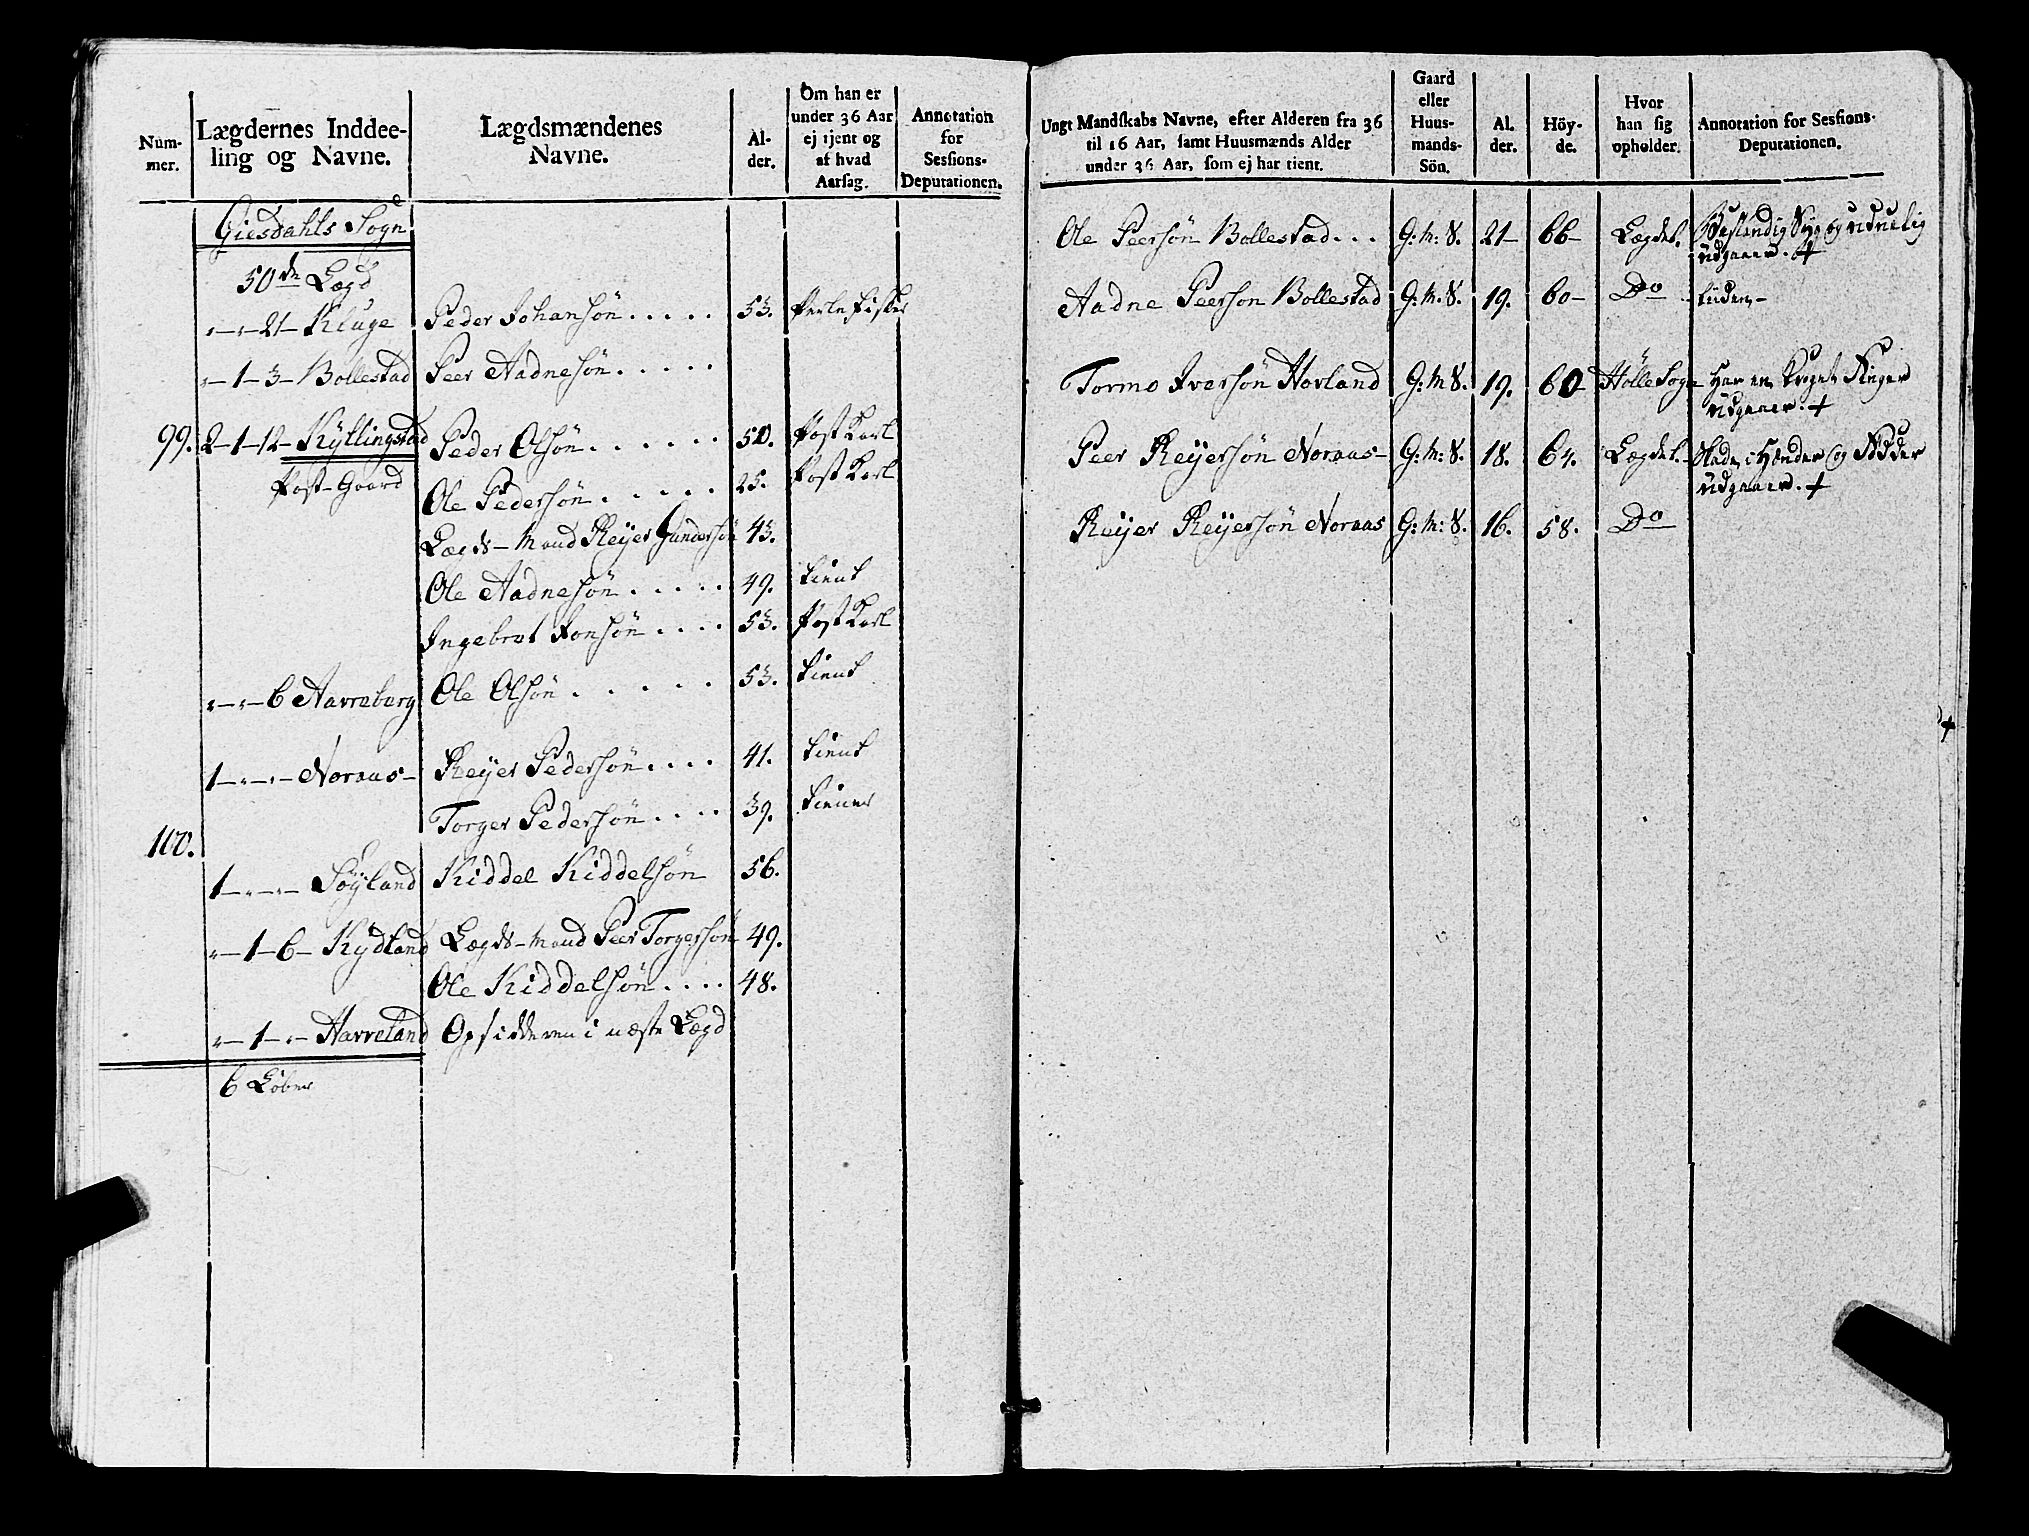 Num-
mer.
Lægdernes Inddee-
ling og Navne.
Lægdsmændenes
Navne.
Al-
der.
Om han er
under 36 Aar
ej tjent og
af hvad
Aarsag.
Annotation
for
Sessions-
Deputationen.
Giesdahls Sogn
50de Lægd
"-"-21- Kluge Peder Johansøn..... 53. Perle fisker
"-1-3- Bollestad Peer Aadnesøn.....
99. 2-1-12- Kytlingstad Peder Olsøn...... 50. Post Karl
Post-Gaard
Ole Pedersøn..... 25. Post Karl
Lægds-Mand Reyer Gundersøn 43.
Ole Aadnesøn..... 49. tient
Ingebret Jonsøn.... 53. Post Karl
"-"-6 Aavreberg Ole Olsøn..... 53. tient
1-"-"- Noraas- Reyer Pedersøn.... 41. tient
Torger Pedersøn.... 39. tiener
100.
1-"-"- Søyland Kiddel Kiddelsøn 56.
"-1-6- Kydland Lægds-Mand Peer Torgersøn 49.
Ole Kiddelsøn.... 48.
"-1-"- Havreland Opsidderen i næste Lægd
6 Løber
Ungt Mandskabs Navne, efter Alderen fra 36
til 16 Aar, samt Huusmænds Alder
under 36 Aar, som ej har tient.
Gaard
eller
Huus-
mands-
Sön.
Al.
der.
Höy-
de.
Hvor
han sig
opholder.
Annotation for Sessions-
Deputationen.
Ole Peersøn Bollestad... G: M: S. 21- 66- Lægdet. Bestandig Syg og uduelig
udgaaer. +
Aadne Peersøn Bollestad G: M: S. 19. 60- Do liden-
Tormo Iversøn Hovland G: M: S. 19. 60 Hölle Sogn Har en Kroget Finger
udgaaer. +
Peer Reyersøn Noraas- G: M: S. 18. 64. Lægdet- Skade i Hænder og Fødder
udgaaer. +
Reyer Reyersøn Noraas G: M: S. 16. 58. Do